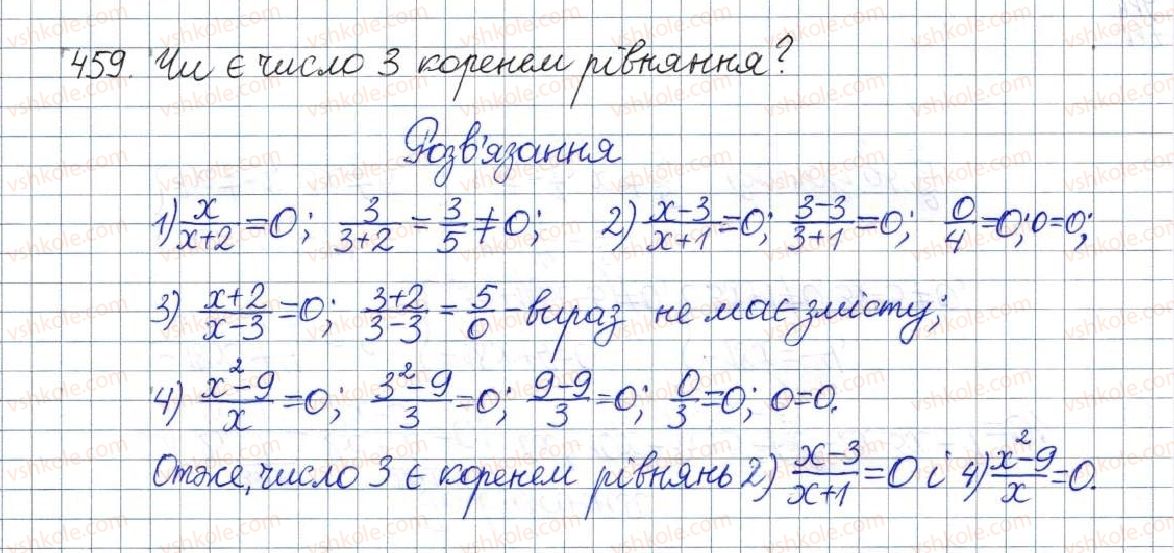 459. Чи є число 3 коренем рівняння?
Розв'язання
1) x/(x+2) = 0; 3/(3+2) = 3/5 ≠ 0; 2) (x-3)/(x+1) = 0; (3-3)/(3+1) = 0; 0/4 = 0; 0=0;
3) (x+2)/(x-3) = 0; (3+2)/(3-3) = 5/0 - вираз не має змісту;
4) (x²-9)/x = 0; (3²-9)/3 = 0; (9-9)/3 = 0; 0/3 = 0; 0=0.
Отже, число 3 є коренем рівнянь 2) (x-3)/(x+1) = 0 і 4) (x²-9)/x = 0.